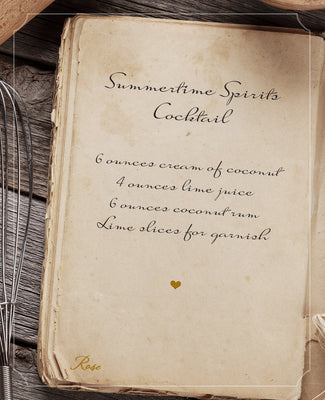 Summertime Spirits
Cocktail
6 ounces cream of coconut
4 ounces lime juice
6 ounces coconut rum
Lime slices for garnish
Rose